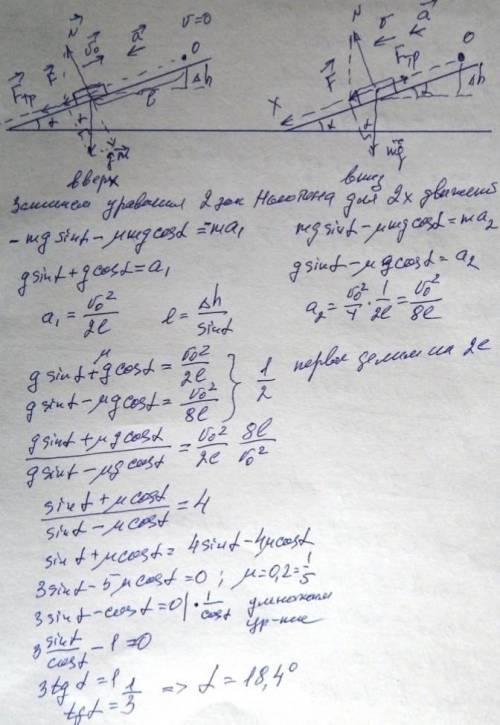 N v₀ a v=0 O
F Fтр l Δh
α α mg
N v a O
F Fтр Δh
X α α mg
вверх вниз
Запишем уравнения 2 зак Ньютона для 2х движений
-mg sinα - μmg cosα = -ma₁
mg sinα - μmg cosα = ma₂
g sinα + g cosα = a₁
g sinα - μg cosα = a₂
a₁ = v₀²/2l l = Δh/sinα
a₂ = v₀²/4 · 1/2l = v₀²/8l
g sinα + μg cosα = v₀²/2l
g sinα - μg cosα = v₀²/8l } 1/2 первое делим на 2е
(g sinα + μg cosα)/(g sinα - μg cosα) = v₀²/2l 8l/v₀²
(sinα + μcosα)/(sinα - μcosα) = 4
sinα + μcosα = 4sinα - 4μcosα
3sinα - 5μcosα = 0 ; μ=0,2=1/5
3sinα - cosα = 0 | · 1/cosα умножаем ур-ние
3 sinα/cosα - 1 = 0
3tgα = 1
tgα = 1/3 => α = 18,4°